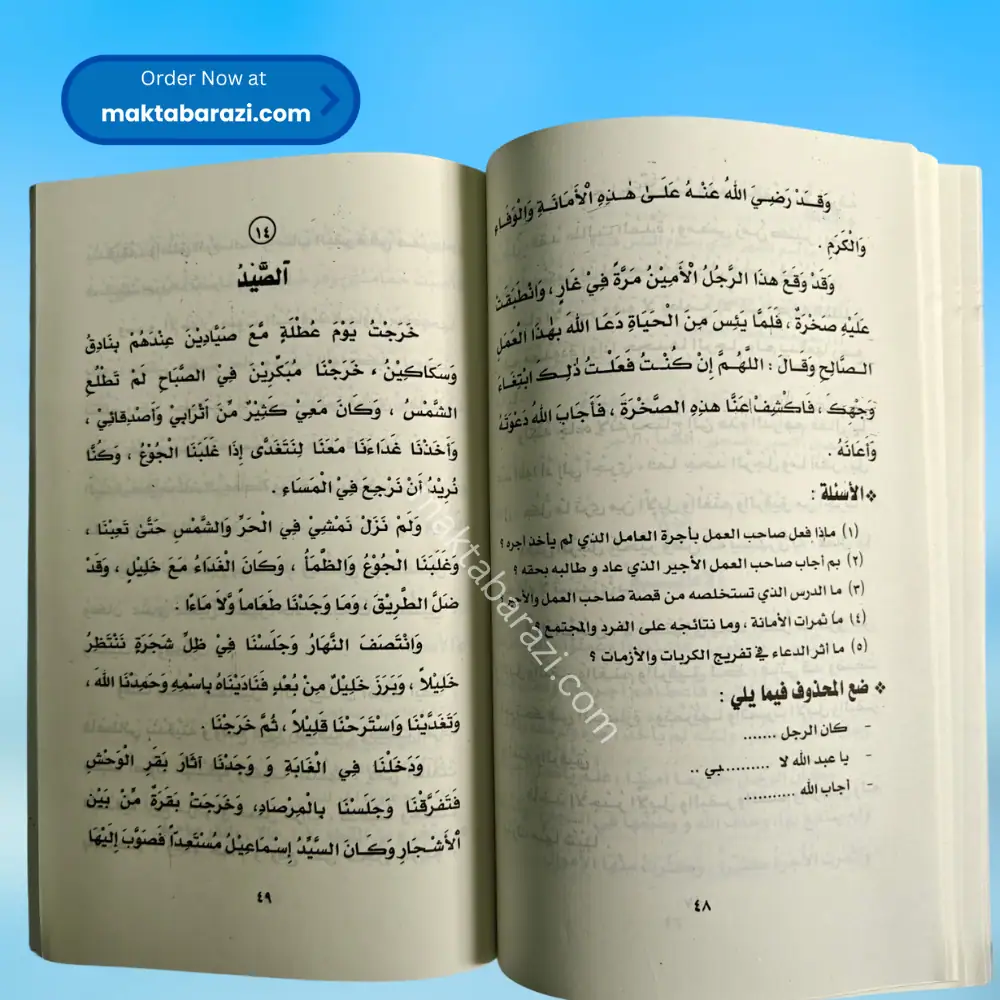 Order Now at
maktabarazi.com
وَقَدْ رَضِيَ اللهُ عَنْهُ عَلَىٰ هٰذِهِ الْأَمَانَةِ وَالْوَفَاءِ
وَالْكَرَمِ .
وَقَدْ وَقَعَ هذَا الرَّجُلُ الْأَمِيْنُ مَرَّةً فِيْ غَارٍ ، وَانْطَبَقَتْ
عَلَيْهِ صَخْرَةٌ ، فَلَمَّا يَئِسَ مِنَ الْحَيَاةِ دَعَا اللهَ بِهٰذَا الْعَمَلِ
الصَّالِحِ وَقَالَ : اللّٰهُمَّ إِنْ كُنْتُ فَعَلْتُ ذٰلِكَ ابْتِغَاءَ
وَجْهِكَ ، فَاكْشِفْ عَنَّا هذِهِ الصَّخْرَةَ ، فَأَجَابَ اللهُ دَعْوَتَهُ
وَأَعَانَهُ .
❖ الأسئلة :
(١) ماذا فعل صاحب العمل بأجرة العامل الذي لم يأخذ أجره ؟
(٢) بم أجاب صاحب العمل الأجير الذي عاد و طالبه بحقه ؟
(٣) ما الدرس الذي تستخلصه من قصة صاحب العمل
(٤) ما ثمرات الأمانة ، وما نتائجه على الفرد والمجتمع ؟
(٥) ما أثر الدعاء في تفريج الكربات والأزمات ؟
❖ ضع المحذوف فيما يلي :
- كان الرجل .......
- يا عبد الله لا ..........بي ..
- أجاب الله ...........
٤٨
١٤
اَلصَّيْدُ
خَرَجْتُ يَوْمَ عُطْلَةٍ مَّعَ صَيَّادِيْنَ عِنْدَهُمْ بَنَادِقُ
وَسَكَاكِيْنُ ، خَرَجْنَا مُبَكِّرِيْنَ فِيْ الصَّبَاحِ لَمْ تَطْلُعِ
الشَّمْسُ ، وَكَانَ مَعِيْ كَثِيْرٌ مِّنْ أَتْرَابِيْ وَأَصْدِقَائِيْ ،
وَأَخَذْنَا غَدَاءَنَا مَعَنَا لِنَتَغَدَّى إِذَا غَلَبَنَا الْجُوْعُ ، وَكُنَّا
نُرِيْدُ أَنْ نَرْجِعَ فِيْ الْمَسَاءِ .
وَلَمْ نَزَلْ نَمْشِيْ فِي الْحَرِّ وَالشَّمْسِ حَتَّىٰ تَعِبْنَا ،
وَغَلَبَنَا الْجُوْعُ وَالظَّمَأُ ، وَكَانَ الْغَدَاءُ مَعَ خَلِيْلٍ ، وَقَدْ
ضَلَّ الطَّرِيْقَ ، وَمَا وَجَدْنَا طَعَاماً وَّلَا مَاءً .
وَانْتَصَفَ النَّهَارُ وَجَلَسْنَا فِيْ ظِلِّ شَجَرَةٍ نَنْتَظِرُ
خَلِيْلاً ، وَبَرَزَ خَلِيْلٌ مِنْ بُعْدٍ فَنَادَيْنَاهُ بِاسْمِهِ وَحَمِدْنَا اللهَ ،
وَتَغَدَّيْنَا وَاسْتَرَحْنَا قَلِيْلاً ، ثُمَّ خَرَجْنَا .
وَدَخَلْنَا فِي الْغَابَةِ وَ وَجَدْنَا آثَارَ بَقَرِ الْوَحْشِ
فَتَفَرَّقْنَا وَجَلَسْنَا بِالْمِرْصَادِ، وَخَرَجَتْ بَقَرَةٌ مِّنْ بَيْنِ
الْأَشْجَارِ وَكَانَ السَّيِّدُ إِسْمَاعِيْلُ مُسْتَعِدّاً فَصَوَّبَ إِلَيْهَا
٤٩
maktabarazi.com